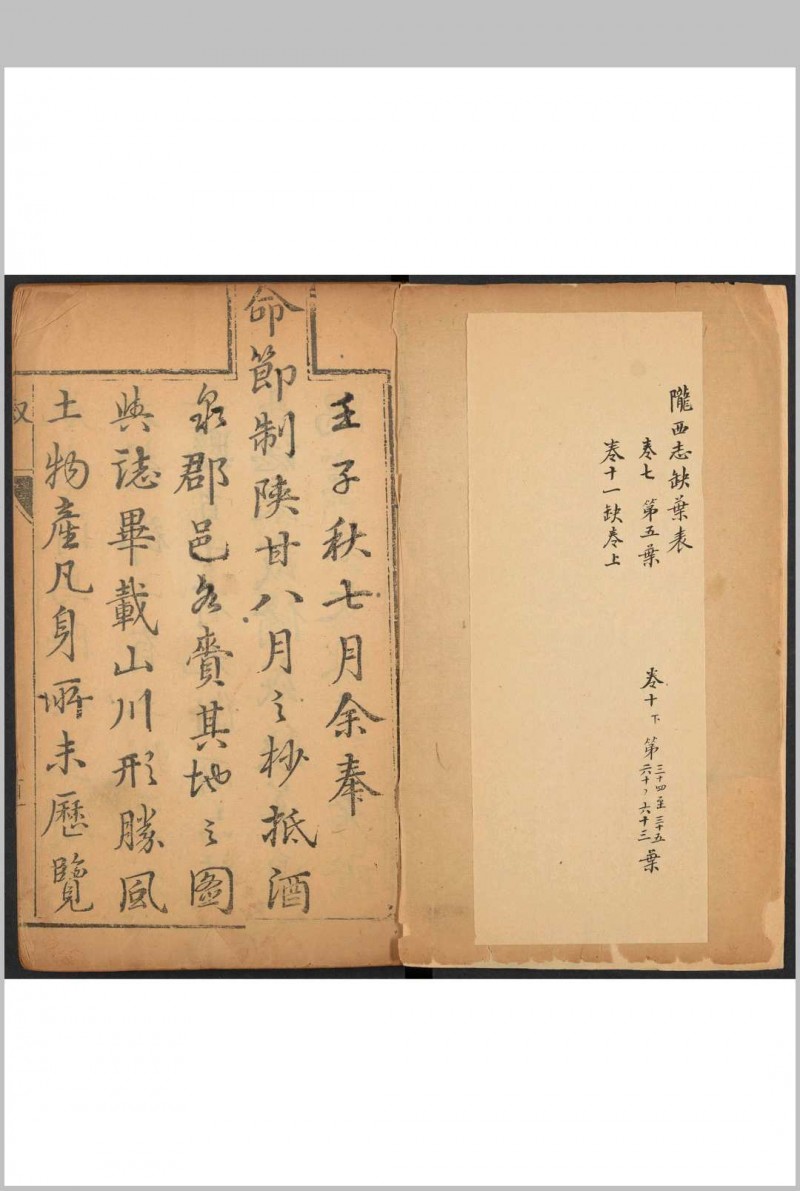 隴西志缺葉表
卷七 第五葉
卷十一缺卷上
卷十下 第三十四至三十五 六十、六十三葉
壬子秋七月余奉
命節制陝甘八月之杪抵酒
泉郡邑各賫其地之圖
與誌畢載山川形勝風
土物產凡身所未歷覽
叙